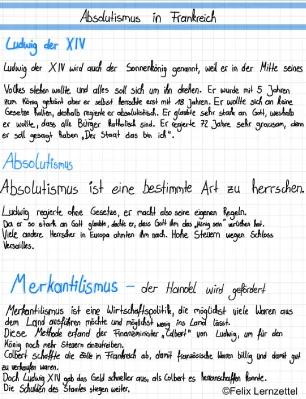 Absolutismus in Frankreich
Ludwig der XIV
Ludwig der XIV wird auch der Sonnenkönig genannt, weil er in der Mitte seines
Volkes stehen wollte und alles soll sich um ihn drehen. Er wurde mit 5 Jahren
zum König gekrönt aber er selbst herrschte erst mit 18 Jahren. Er wollte sich an keine
Gesetze halten, deshalb regierte er absolutistisch. Er glaubte sehr stark an Gott, weshalb
er wollte, dass alle Bürger Katholisch sind. Er regierte 72 Jahre sehr grausam, denn
er soll gesagt haben „Der Staat das bin ich".
Absolutismus
Absolutismus ist eine bestimmte Art zu herrschen.
Ludwig regierte ohne Gesetze, er macht also seine eigenen Regeln.
Da er so stark an Gott glaubte, dachte er, dass Gott ihm das „König sein" verliehen hat.
Viele andere Herrscher in Europa ahmten ihm nach. Hohe Steuern wegen Schloss
Versailles.
Merkantilismus – der Handel wird gefördert
Merkantilismus ist eine Wirtschaftspolitik, die möglichst viele Waren aus
dem Land ausführen möchte und möglichst wenig ins Land lässt.
Diese Methode erfand der Finanzminister „Colbert" von Ludwig, um für den
König noch mehr Steuern einzutreiben.
Colbert schaffte die Zölle in Frankreich ab, damit französische Waren billig und damit gut
zu verkaufen waren.
Doch Ludwig XIV gab das Geld schneller aus, als Colbert es heranschaffen konnte.
Die Schulden des Staates stiegen weiter.
©Felix Lernzettel